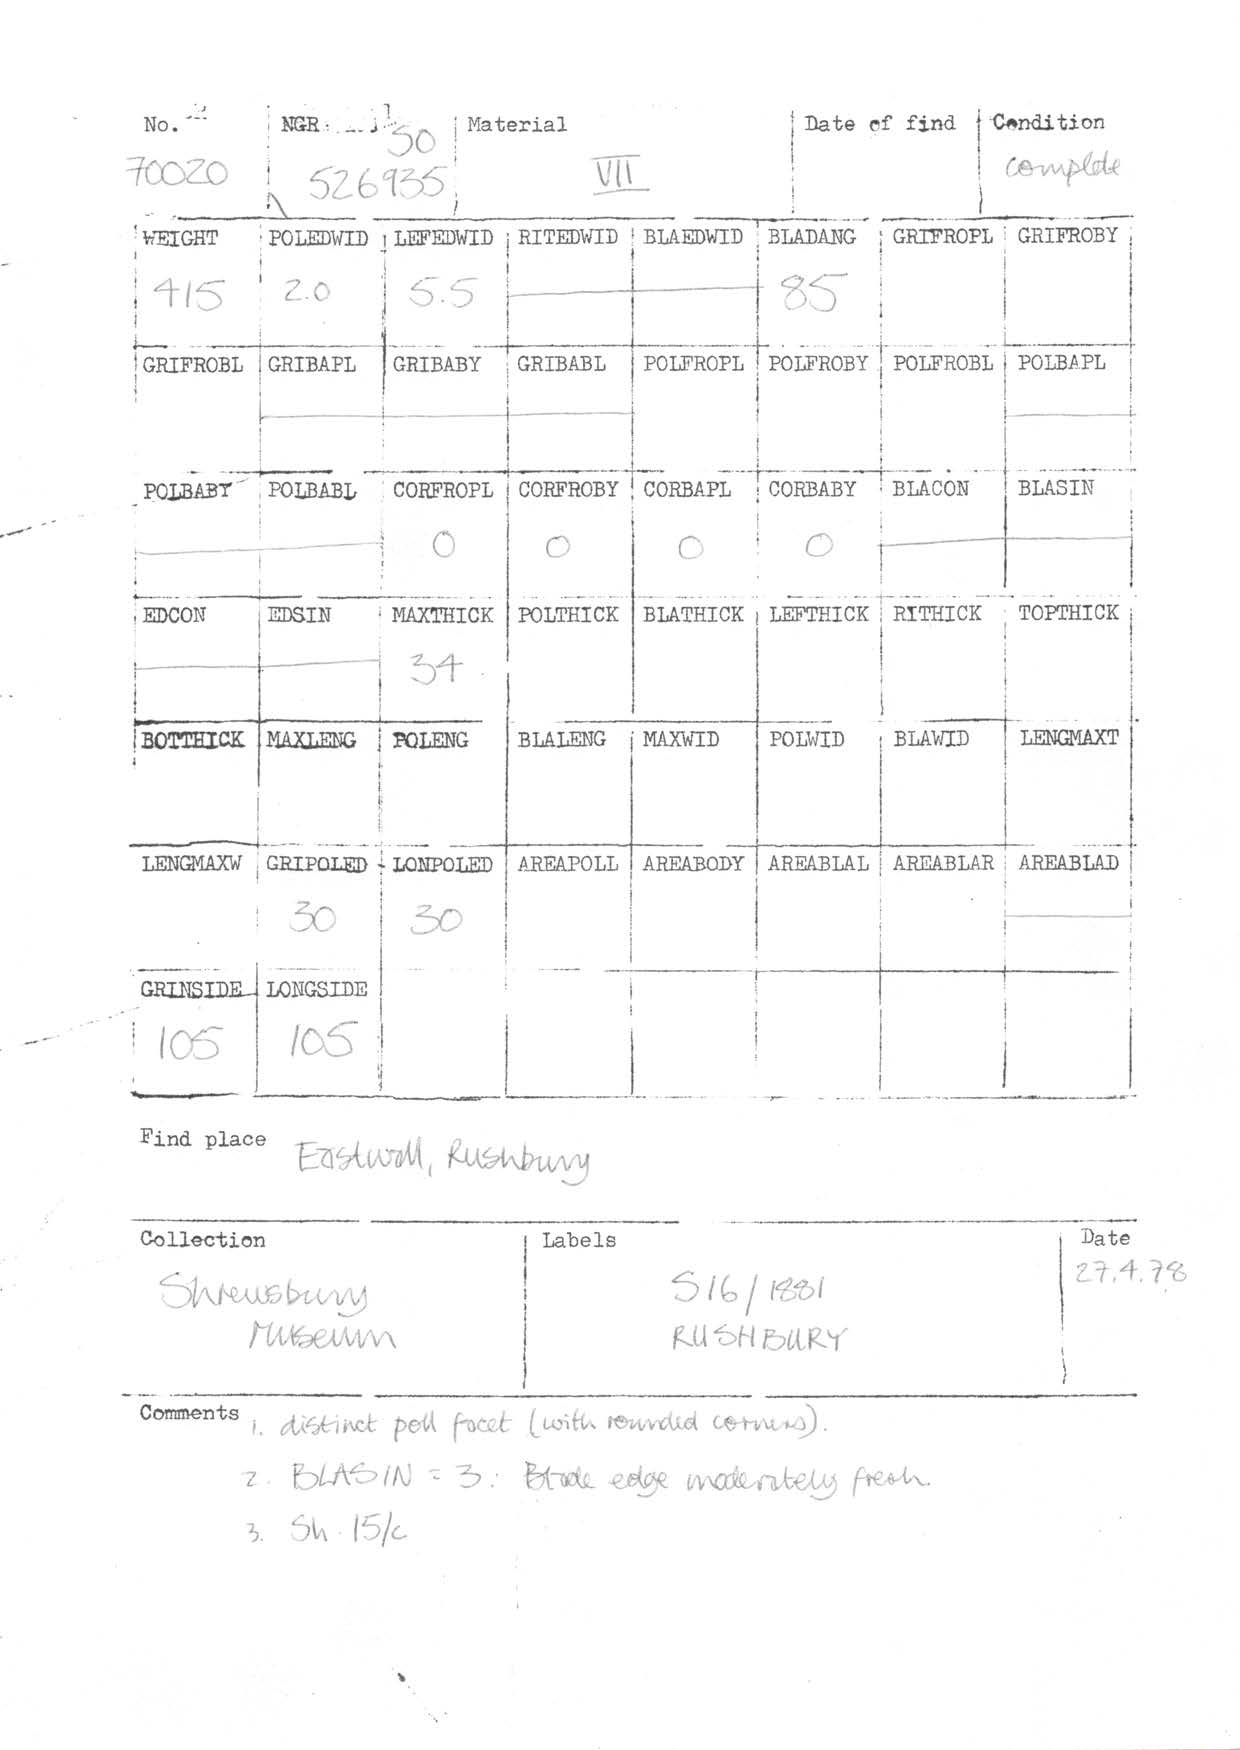 No. NGR Material Date of find Condition
50
70020 526935 VII complete
WEIGHT POLEDWID LEFEDWID RITEDWID BLAEDWID BLADANG GRIFROPL GRIFROBY
415 2.0 5.5 85
GRIFROBL GRIBAPL GRIBABY GRIBABL POLFROPL POLFROBY POLFROBL POLBAPL
POLBABY POLBABL CORFROPL CORFROBY CORBAPL CORBABY BLACON BLASIN
0 0 0 0
EDCON EDSIN MAXTHICK POLTHICK BLATHICK LEFTHICK RITHICK TOPTHICK
34
BOTTHICK MAXLENG POLENG BLALENG MAXWID POLWID BLAWID LENGMAXT
LENGMAXW GRIPOLED LONPOLED AREAPOLL AREABODY AREABLAL AREABLAR AREABLAD
30 30
GRINSIDE LONGSIDE
105 105
Find place Eastwall, Rushbury
Collection Labels Date
27.4.78
Shrewsbury 516/1881
Museum RUSHBURY
Comments 1. distinct poll facet (with rounded corners).
2. BLASIN = 3: Blade edge moderately fresh.
3. Sh. 15/c